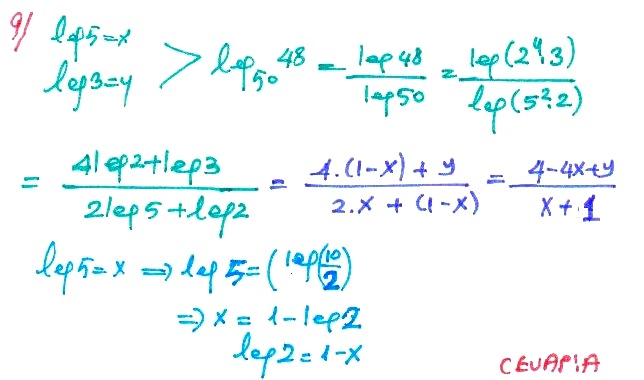 9/ log5=x
log3=y > log₅₀48 = log48/log50 = log(2⁴.3)/log(5².2)
= 4log2+log3/2log5+log2 = 4.(1-x)+y/2.x+(1-x) = 4-4x+y/x+1
log5=x ⇒ log5=(log(10/2)
⇒ x = 1-log2
log2=1-x
CEVAP:A